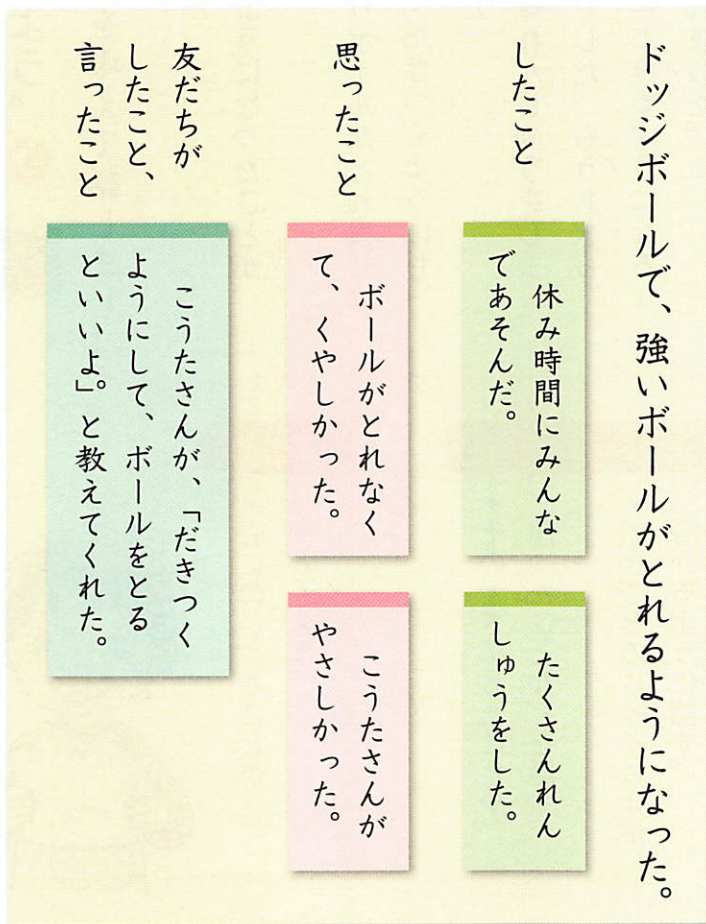 ドッジボールで、強いボールがとれるようになった。
したこと
休み時間にみんな
であそんだ。
たくさんれん
しゅうをした。
思ったこと
ボールがとれなく
て、くやしかった。
こうたさんが
やさしかった。
友だちが
したこと、
言ったこと
こうたさんが、「だきつく
ようにして、ボールをとる
といいよ」。と教えてくれた。